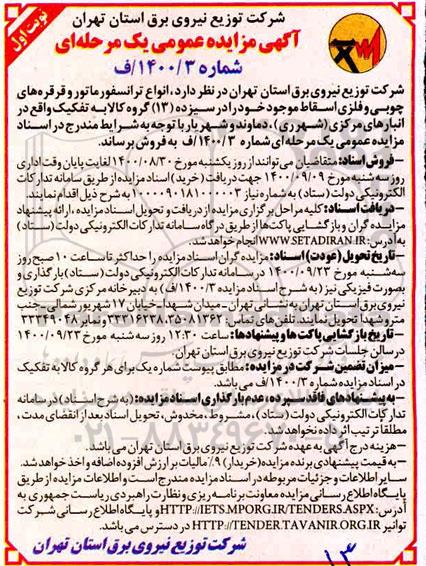 نوبت اول
شرکت توزیع نیروی برق استان تهران
آگهی مزایده عمومی یک مرحله‌ای
شماره ۱۴۰۰/۳/ف
شرکت توزیع نیروی برق استان تهران در نظر دارد، انواع ترانسفورماتور و قرقره‌های
چوبی و فلزی اسقاط موجود خود را در سیزده (۱۳) گروه کالا به تفکیک واقع در
انبارهای مرکزی (شهرری)، دماوند و شهریار با توجه به شرایط مندرج در اسناد
مزایده عمومی یک مرحله‌ای شماره ۱۴۰۰/۳/ف به فروش برساند.
–فروش اسناد: متقاضیان می‌توانند از روز یکشنبه مورخ ۱۴۰۰/۰۸/۳۰ لغایت پایان وقت اداری
روز سه‌شنبه مورخ ۱۴۰۰/۰۹/۰۹ جهت دریافت (خرید) اسناد مزایده از طریق سامانه تدارکات
الکترونیکی دولت (ستاد) به شماره نیاز ۱۰۰۰۰۹۰۱۸۱۰۰۰۰۰۳ به شرح ذیل اقدام نمایند.
–دریافت اسناد: کلیه مراحل برگزاری مزایده از دریافت و تحویل اسناد مزایده، ارائه پیشنهاد
مزایده گران و بازگشایی پاکت‌ها از طریق درگاه سامانه تدارکات الکترونیکی دولت (ستاد)
به آدرس: WWW.SETADIRAN.IR انجام خواهد شد.
–تاریخ تحویل (عودت) اسناد: مزایده گران اسناد مزایده را حداکثر تا ساعت ۱۰ صبح روز
سه‌شنبه مورخ ۱۴۰۰/۰۹/۲۳ در سامانه تدارکات الکترونیکی دولت (ستاد) بارگذاری و
بصورت فیزیکی نیز (به شرح اسناد مزایده ۱۴۰۰/۳/ف) به دبیرخانه مرکزی شرکت توزیع
نیروی برق استان تهران به نشانی تهران–میدان شهدا–خیابان ۱۷ شهریور شمالی–جنب
مترو شهدا تحویل نمایند. تلفن های تماس: ۳۵۰۸۱۳۶۲–۳۳۳۱۶۲۳۸ و نمابر ۳۳۳۴۹۰۴۸
–تاریخ بازگشایی پاکت ها و پیشنهادها: ساعت ۱۲:۳۰ روز سه شنبه مورخ ۱۴۰۰/۰۹/۲۳
در سالن جلسات شرکت توزیع نیروی برق استان تهران.
–میزان تضمین شرکت در مزایده: مطابق پیوست شماره یک برای هر گروه کالا به تفکیک
در اسناد مزایده شماره ۱۴۰۰/۳/ف می‌باشد.
–به پیشنهادهای فاقد سپرده، عدم بارگذاری اسناد مزایده: (به شرح اسناد) در سامانه
تدارکات الکترونیکی دولت (ستاد)، مشروط، مخدوش، تحویل اسناد بعد از انقضای مدت،
مطلقا ترتیب اثر داده نخواهد شد.
–هزینه درج آگهی به عهده شرکت توزیع نیروی برق استان تهران می باشد.
–به قیمت پیشنهادی برنده مزایده (خریدار) ۹٪ مالیات بر ارزش افزوده اضافه و اخذ خواهد شد.
سایر اطلاعات و جزئیات مربوطه در اسناد مزایده مندرج است و اطلاعات مزایده از طریق
پایگاه اطلاع رسانی مزایده معاونت برنامه ریزی و نظارت راهبردی ریاست جمهوری به
آدرس: HTTP://IETS.MPORG.IR/TENDERS.ASPX و پایگاه اطلاع رسانی شرکت
توانیر HTTP://TENDER.TAVANIR.ORG.IR در دسترس می باشد.
شرکت توزیع نیروی برق استان تهران
۱۳